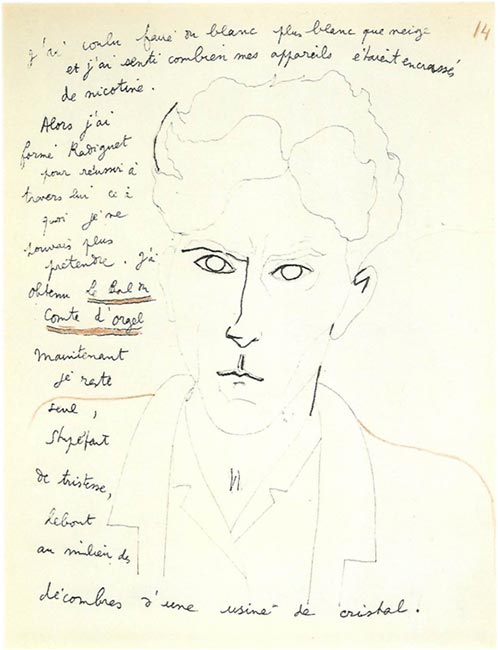 j'ai voulu faire du blanc plus blanc que neige
et j'ai senti combien mes appareils étaient encrassés
de nicotine.
Alors j'ai
formé Radiguet
pour réussir à
travers lui ce à
quoi je ne
pouvais plus
prétendre. j'ai
obtenu le Bal du
Comte d'orgel
Maintenant
je reste
seul,
stupéfait
de tristesse,
debout
au milieu des
décombres d'une usine de cristal.
14